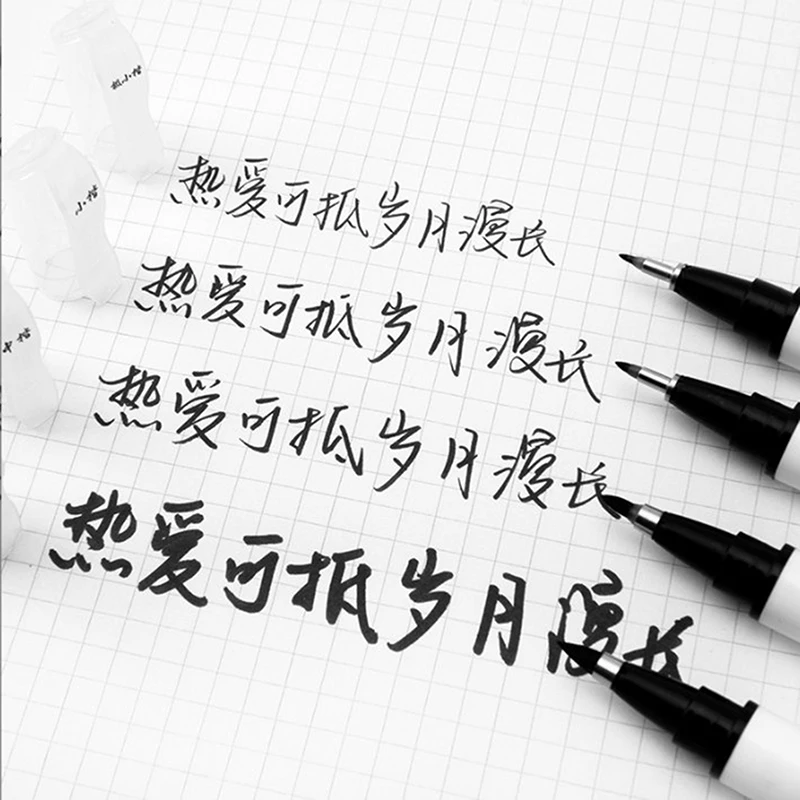 极小楷
小楷
中楷
热爱可抵岁月漫长
热爱可抵岁月漫长
热爱可抵岁月漫长
热爱可抵岁月漫长